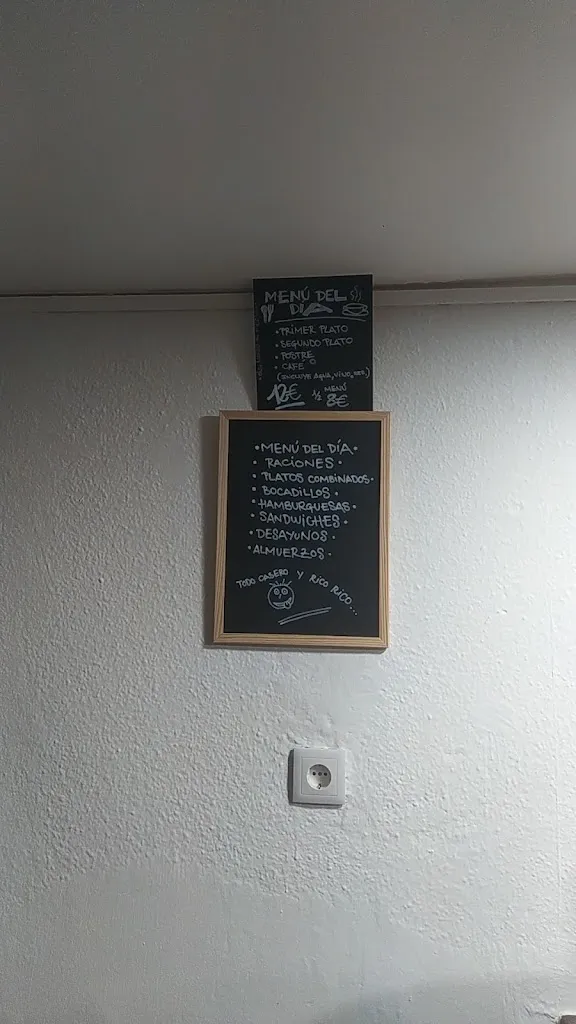 MENÚ DEL
DIA
• PRIMER PLATO
• SEGUNDO PLATO
• POSTRE
O
• CAFÉ
(INCLUYE AGUA, VINO, REF.)
12€ ½ MENÚ 8€
• MENÚ DEL DÍA •
• RACIONES •
• PLATOS COMBINADOS •
• BOCADILLOS •
• HAMBURGUESAS •
• SANDWICHES •
• DESAYUNOS •
• ALMUERZOS •
TODO CASERO Y RICO RICO...